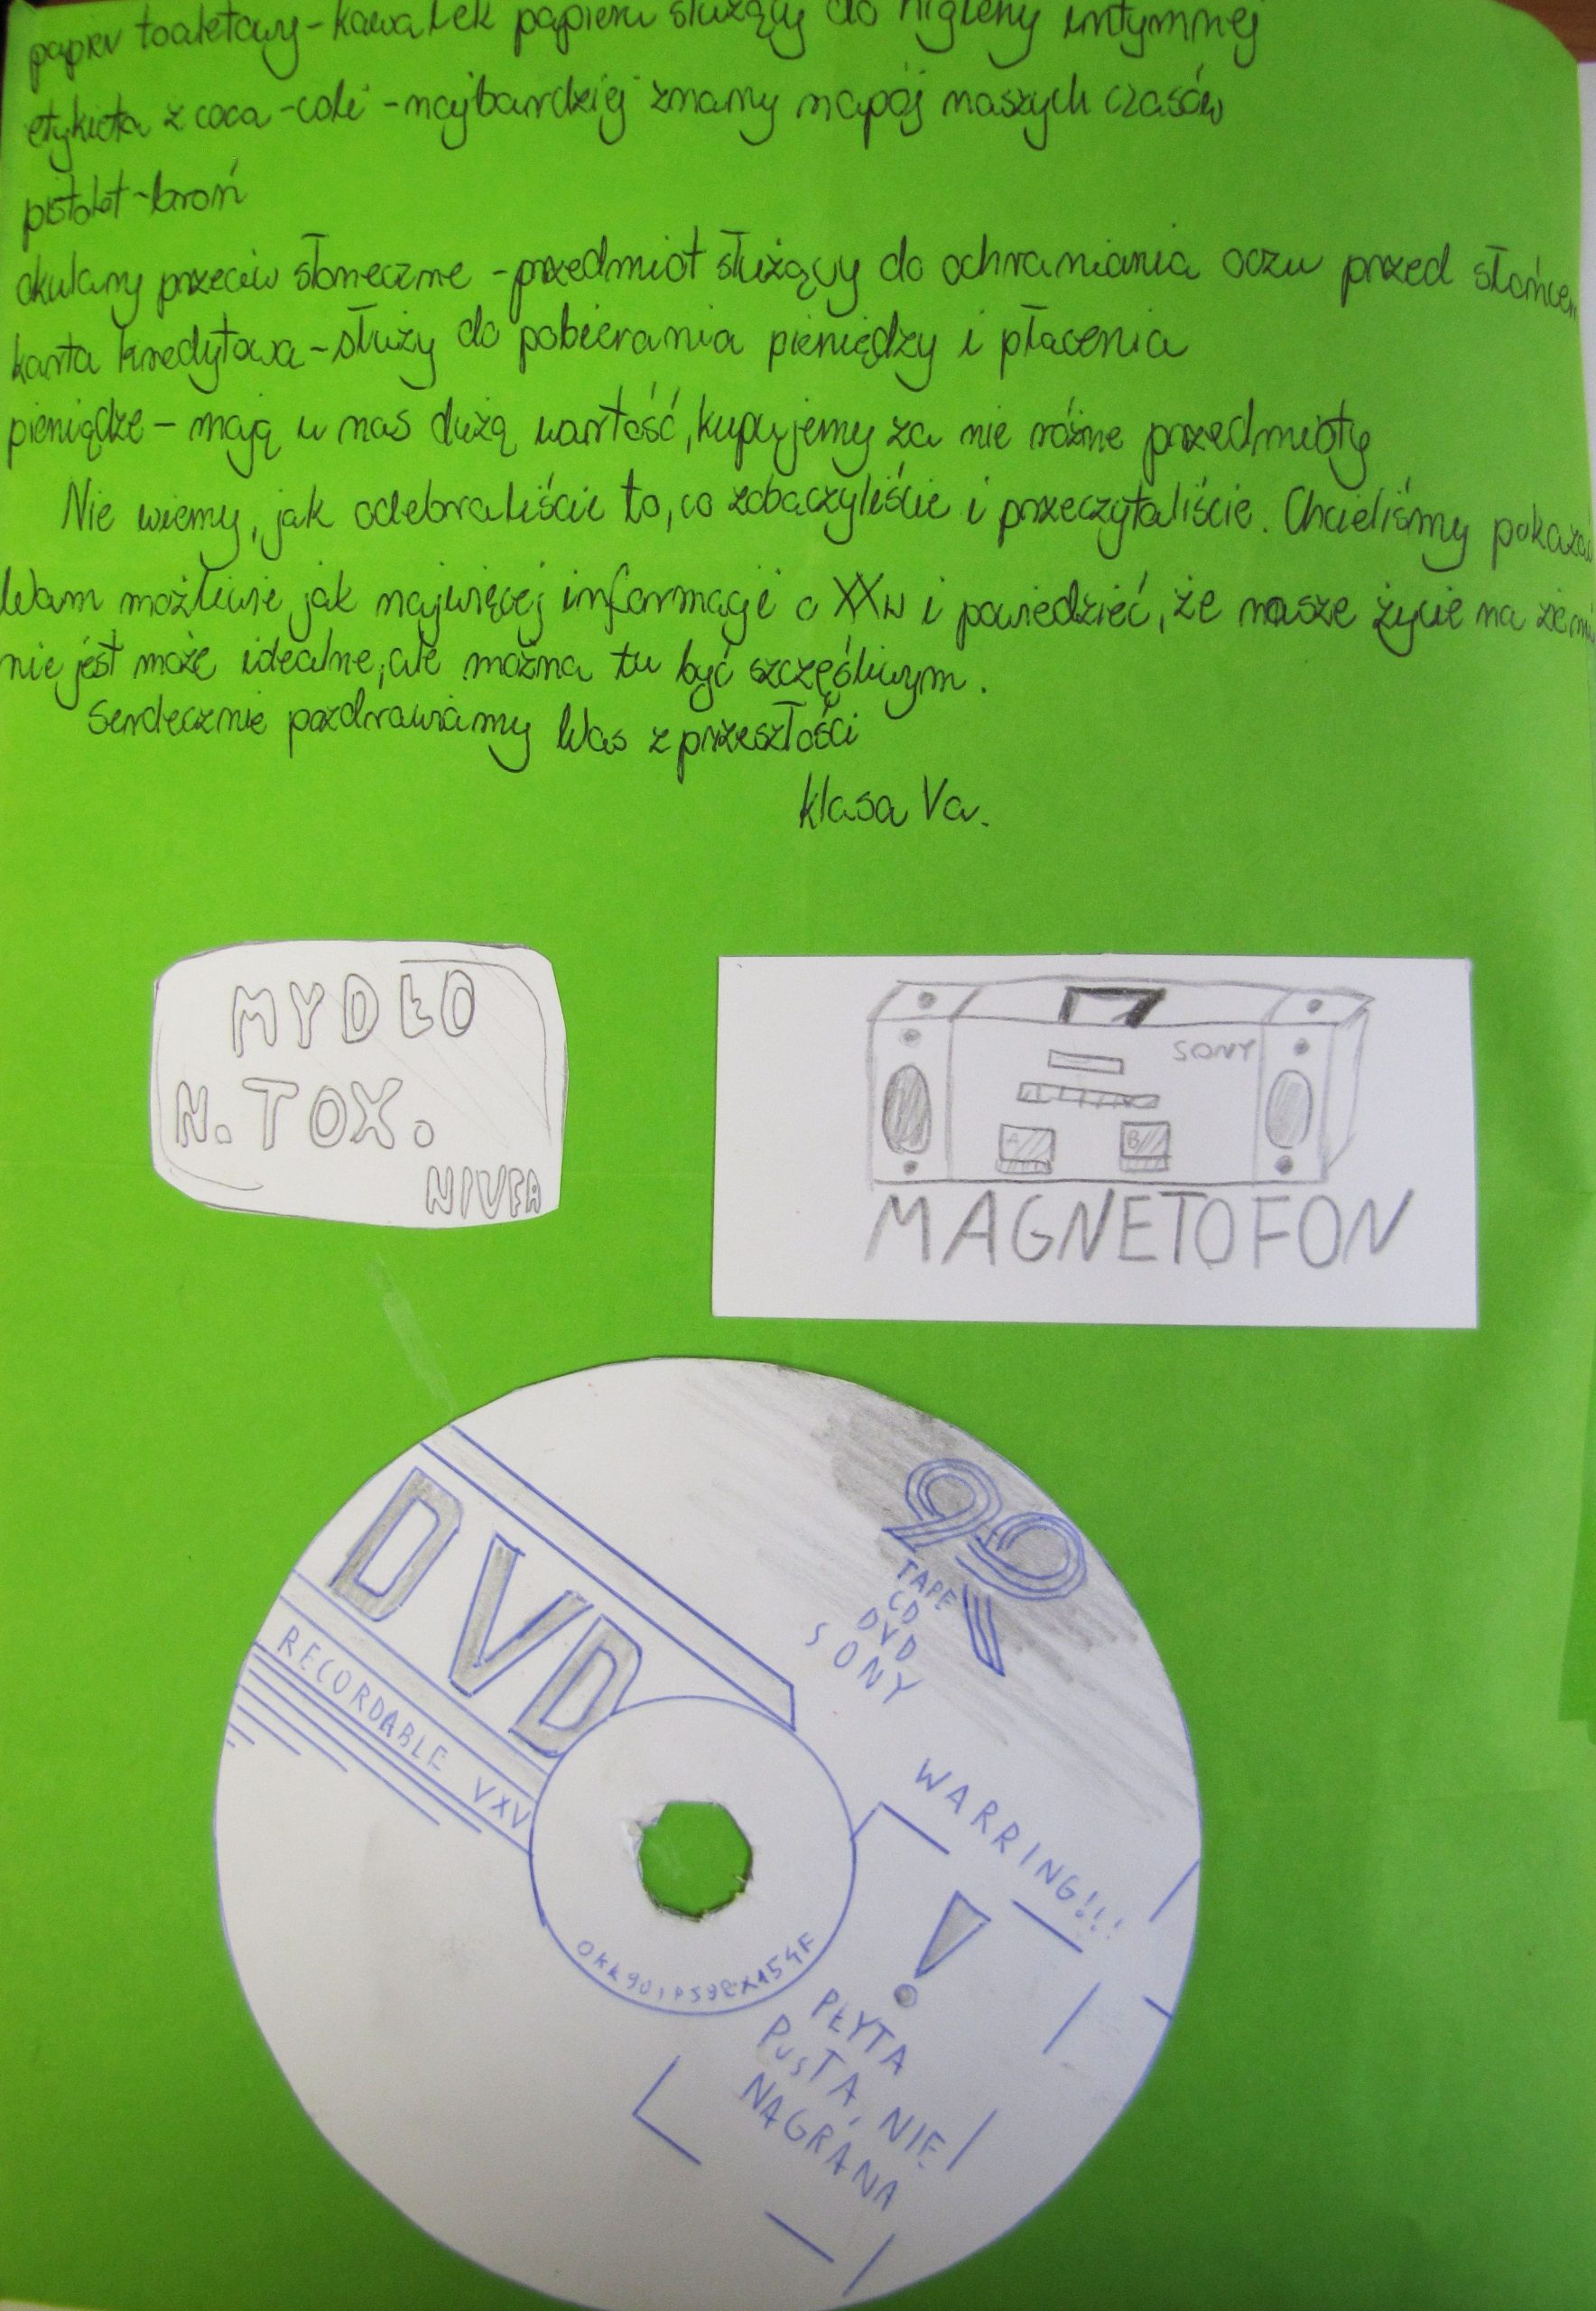 papier toaletowy - kawałek papieru służący do higieny intymnej
etykieta z coca-coli - najbardziej znany napój naszych czasów
pistolet - broń
okulary przeciw słoneczne - przedmiot służący do ochraniania oczu przed słońcem
karta kredytowa - służy do pobierania pieniędzy i płacenia
pieniądze - mają u nas dużą wartość, kupujemy za nie różne przedmioty
Nie wiemy, jak odebraliście to, co zobaczyliście i przeczytaliście. Chcieliśmy pokazać
Wam możliwie jak najwięcej informacji o XXw i powiedzieć, że nasze życie na ziemi
nie jest może idealne, ale można tu być szczęśliwym.
Serdecznie pozdrawiamy Was z przeszłości
klasa Va.
MYDŁO
N.TOX.
NIVEA
SONY
A
B
MAGNETOFON
DVD
RECORDABLE VXV
90
TAPE
CD
DVD
SONY
WARRING!!!
!
PŁYTA
PUSTA, NIE
NAGRANA